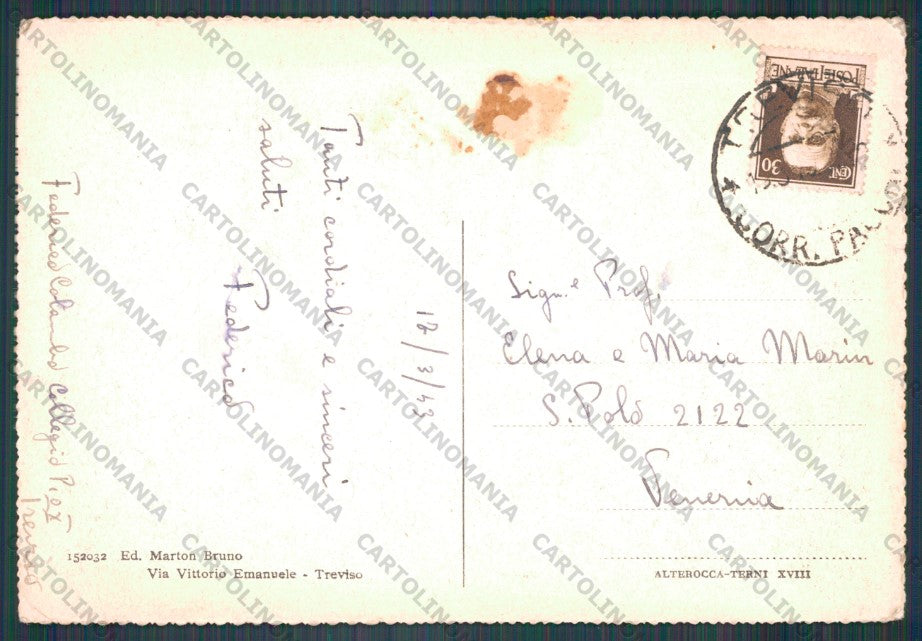 Tanti cordiali e sinceri
saluti
Federico
17/3/43
Federico Colombo Collegio Pio X
Treviso
152032 Ed. Marton Bruno
Via Vittorio Emanuele - Treviso
POSTE ITALIANE
CENT. 30
TREVISO
CORR. PACCHI
Sign.e Prof.
Elena e Maria Marin
S. Polo 2122
Venezia
ALTEROCCA-TERNI XVIII
CARTOLINOMANIA